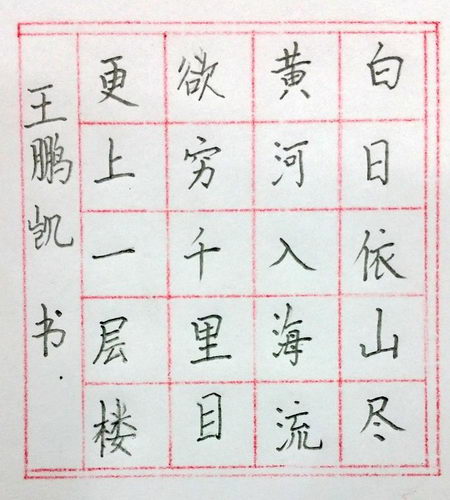 白日依山尽
黄河入海流
欲穷千里目
更上一层楼
王鹏凯 书.